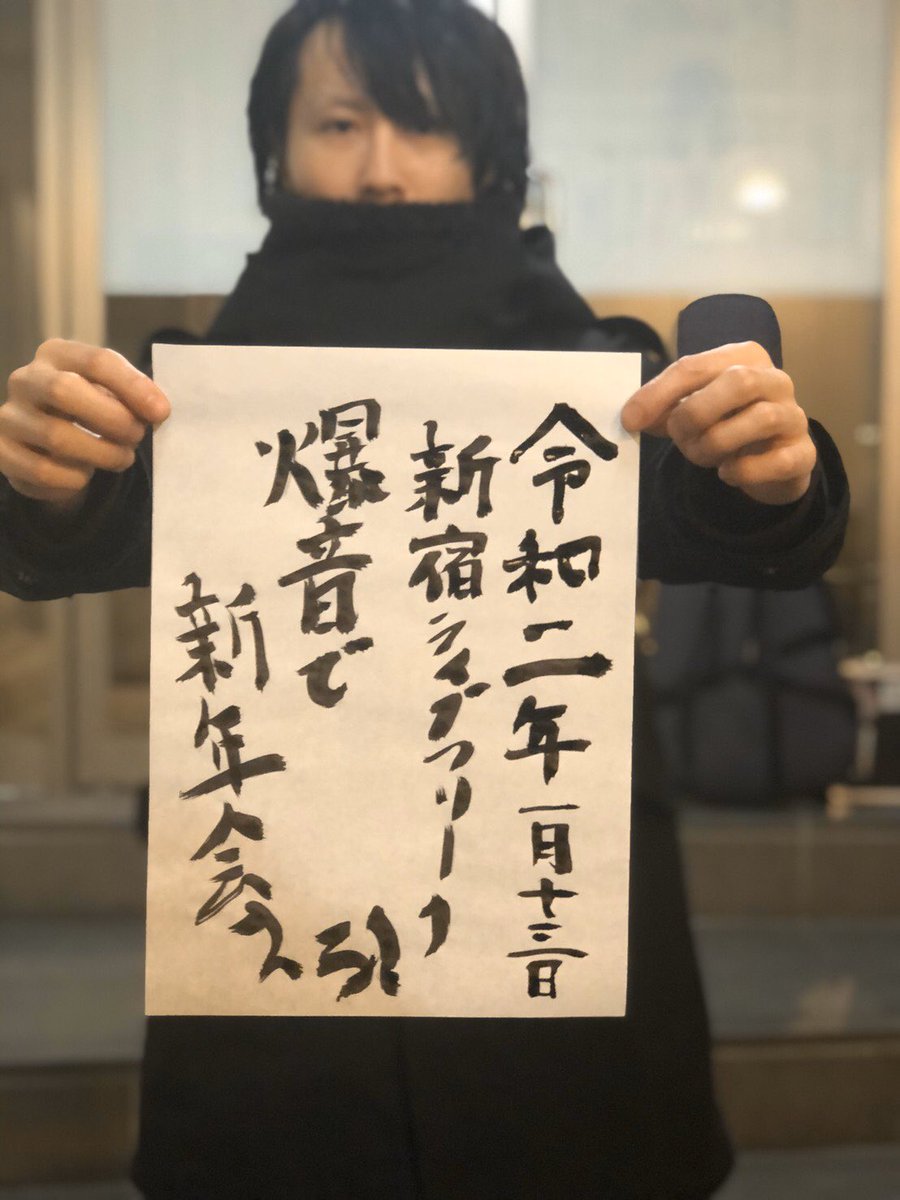 令和二年一月十三日
新宿ライブフリーク
爆音で
新年会